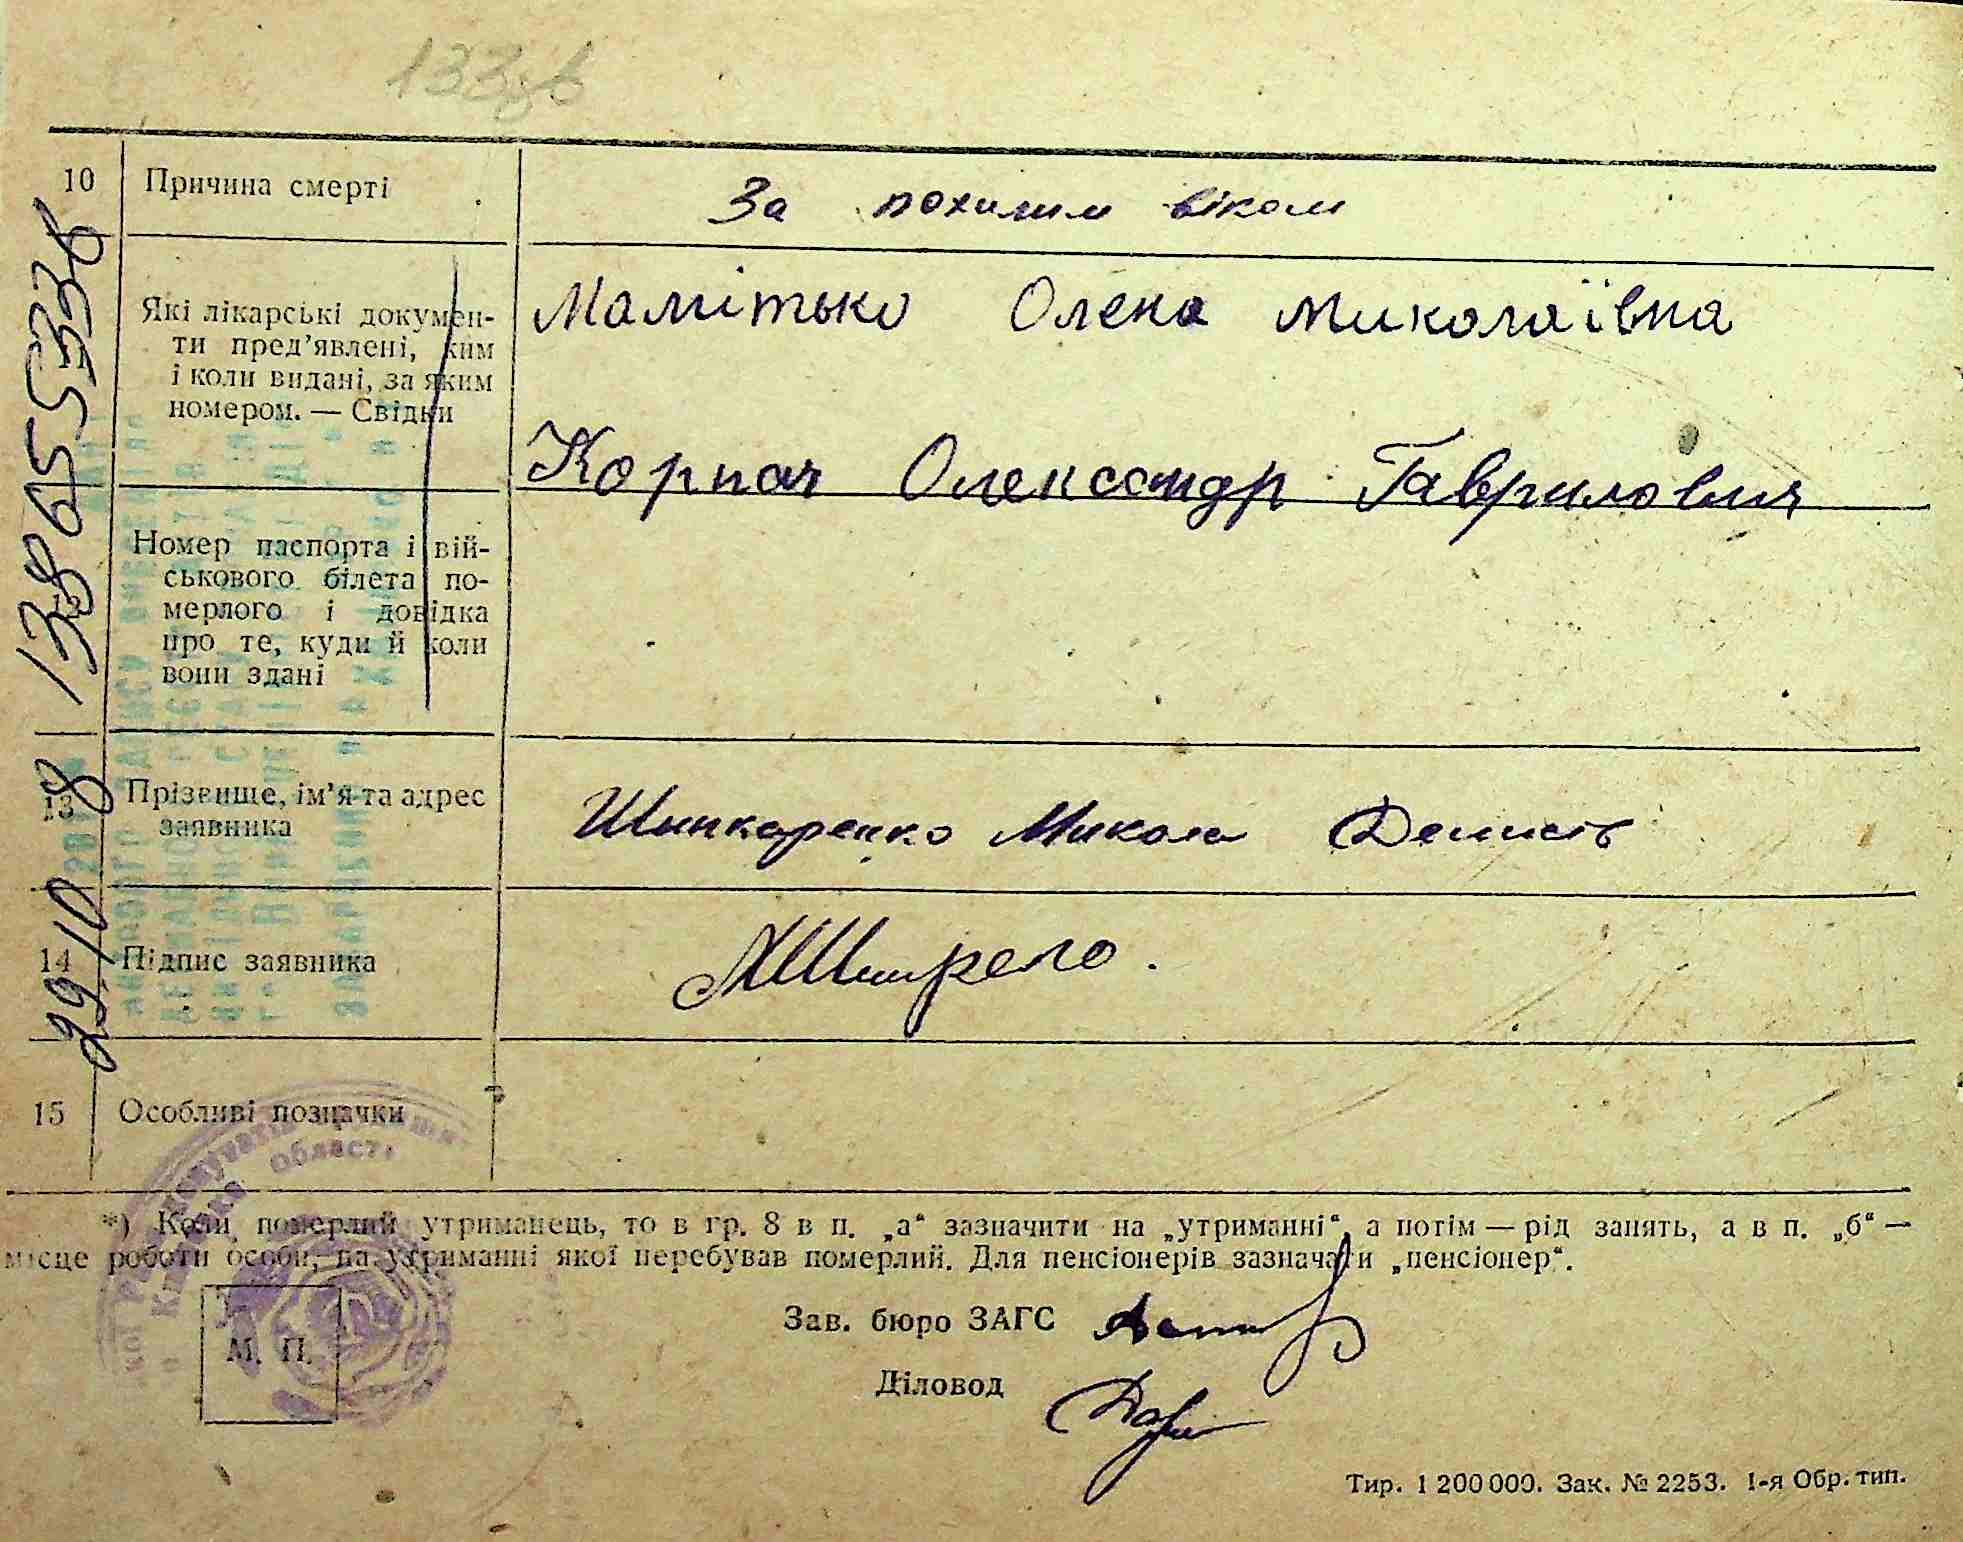 133зв
10 Причина смерті За похилим віком
Які лікарські докумен-
ти пред’явлені, ким
і коли видані, за яким
номером. — Свідки
Мамітько Олена Миколаївна
Корпач Олександр Гаврилович
12 Номер паспорта і вій-
ськового білета по-
мерлого і довідка
про те, куди й коли
вони здані
13 Прізвище, ім’я та адрес
заявника
Шинкаренко Микола Денисів
14 Підпис заявника
15 Особливі позначки
*) Коли померлий утриманець, то в гр. 8 в п. „а“ зазначити на „утриманні“, а потім — рід занять, а в п. „б“ —
місце роботи особи, на утриманні якої перебував померлий. Для пенсіонерів зазначати „пенсіонер“.
М. П.
Зав. бюро ЗАГС
Діловод
Тир. 1 200 000. Зак. № 2253. 1-я Обр. тип.
області